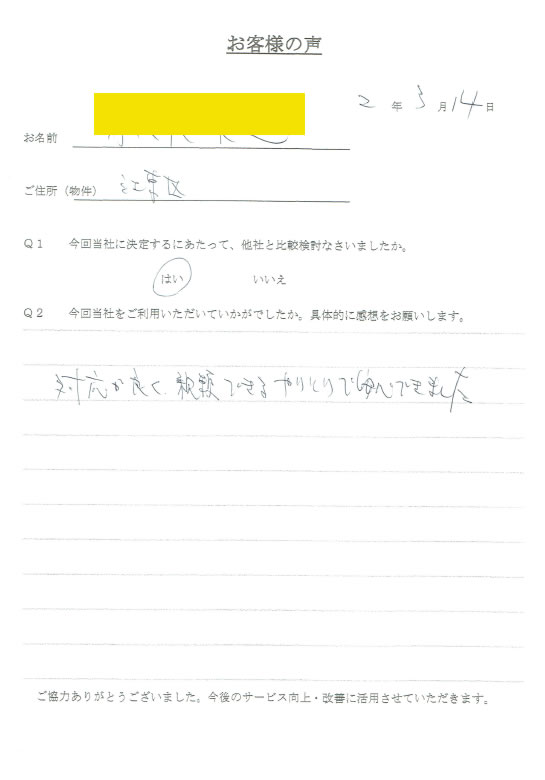 お客様の声
2年3月14日
お名前
ご住所（物件） 江東区
Q1 今回当社に決定するにあたって、他社と比較検討なさいましたか。
はい いいえ
Q2 今回当社をご利用いただいていかがでしたか。具体的に感想をお願いします。
対応が良く、親頼できるやりとりで安心できました
ご協力ありがとうございました。今後のサービス向上・改善に活用させていただきます。